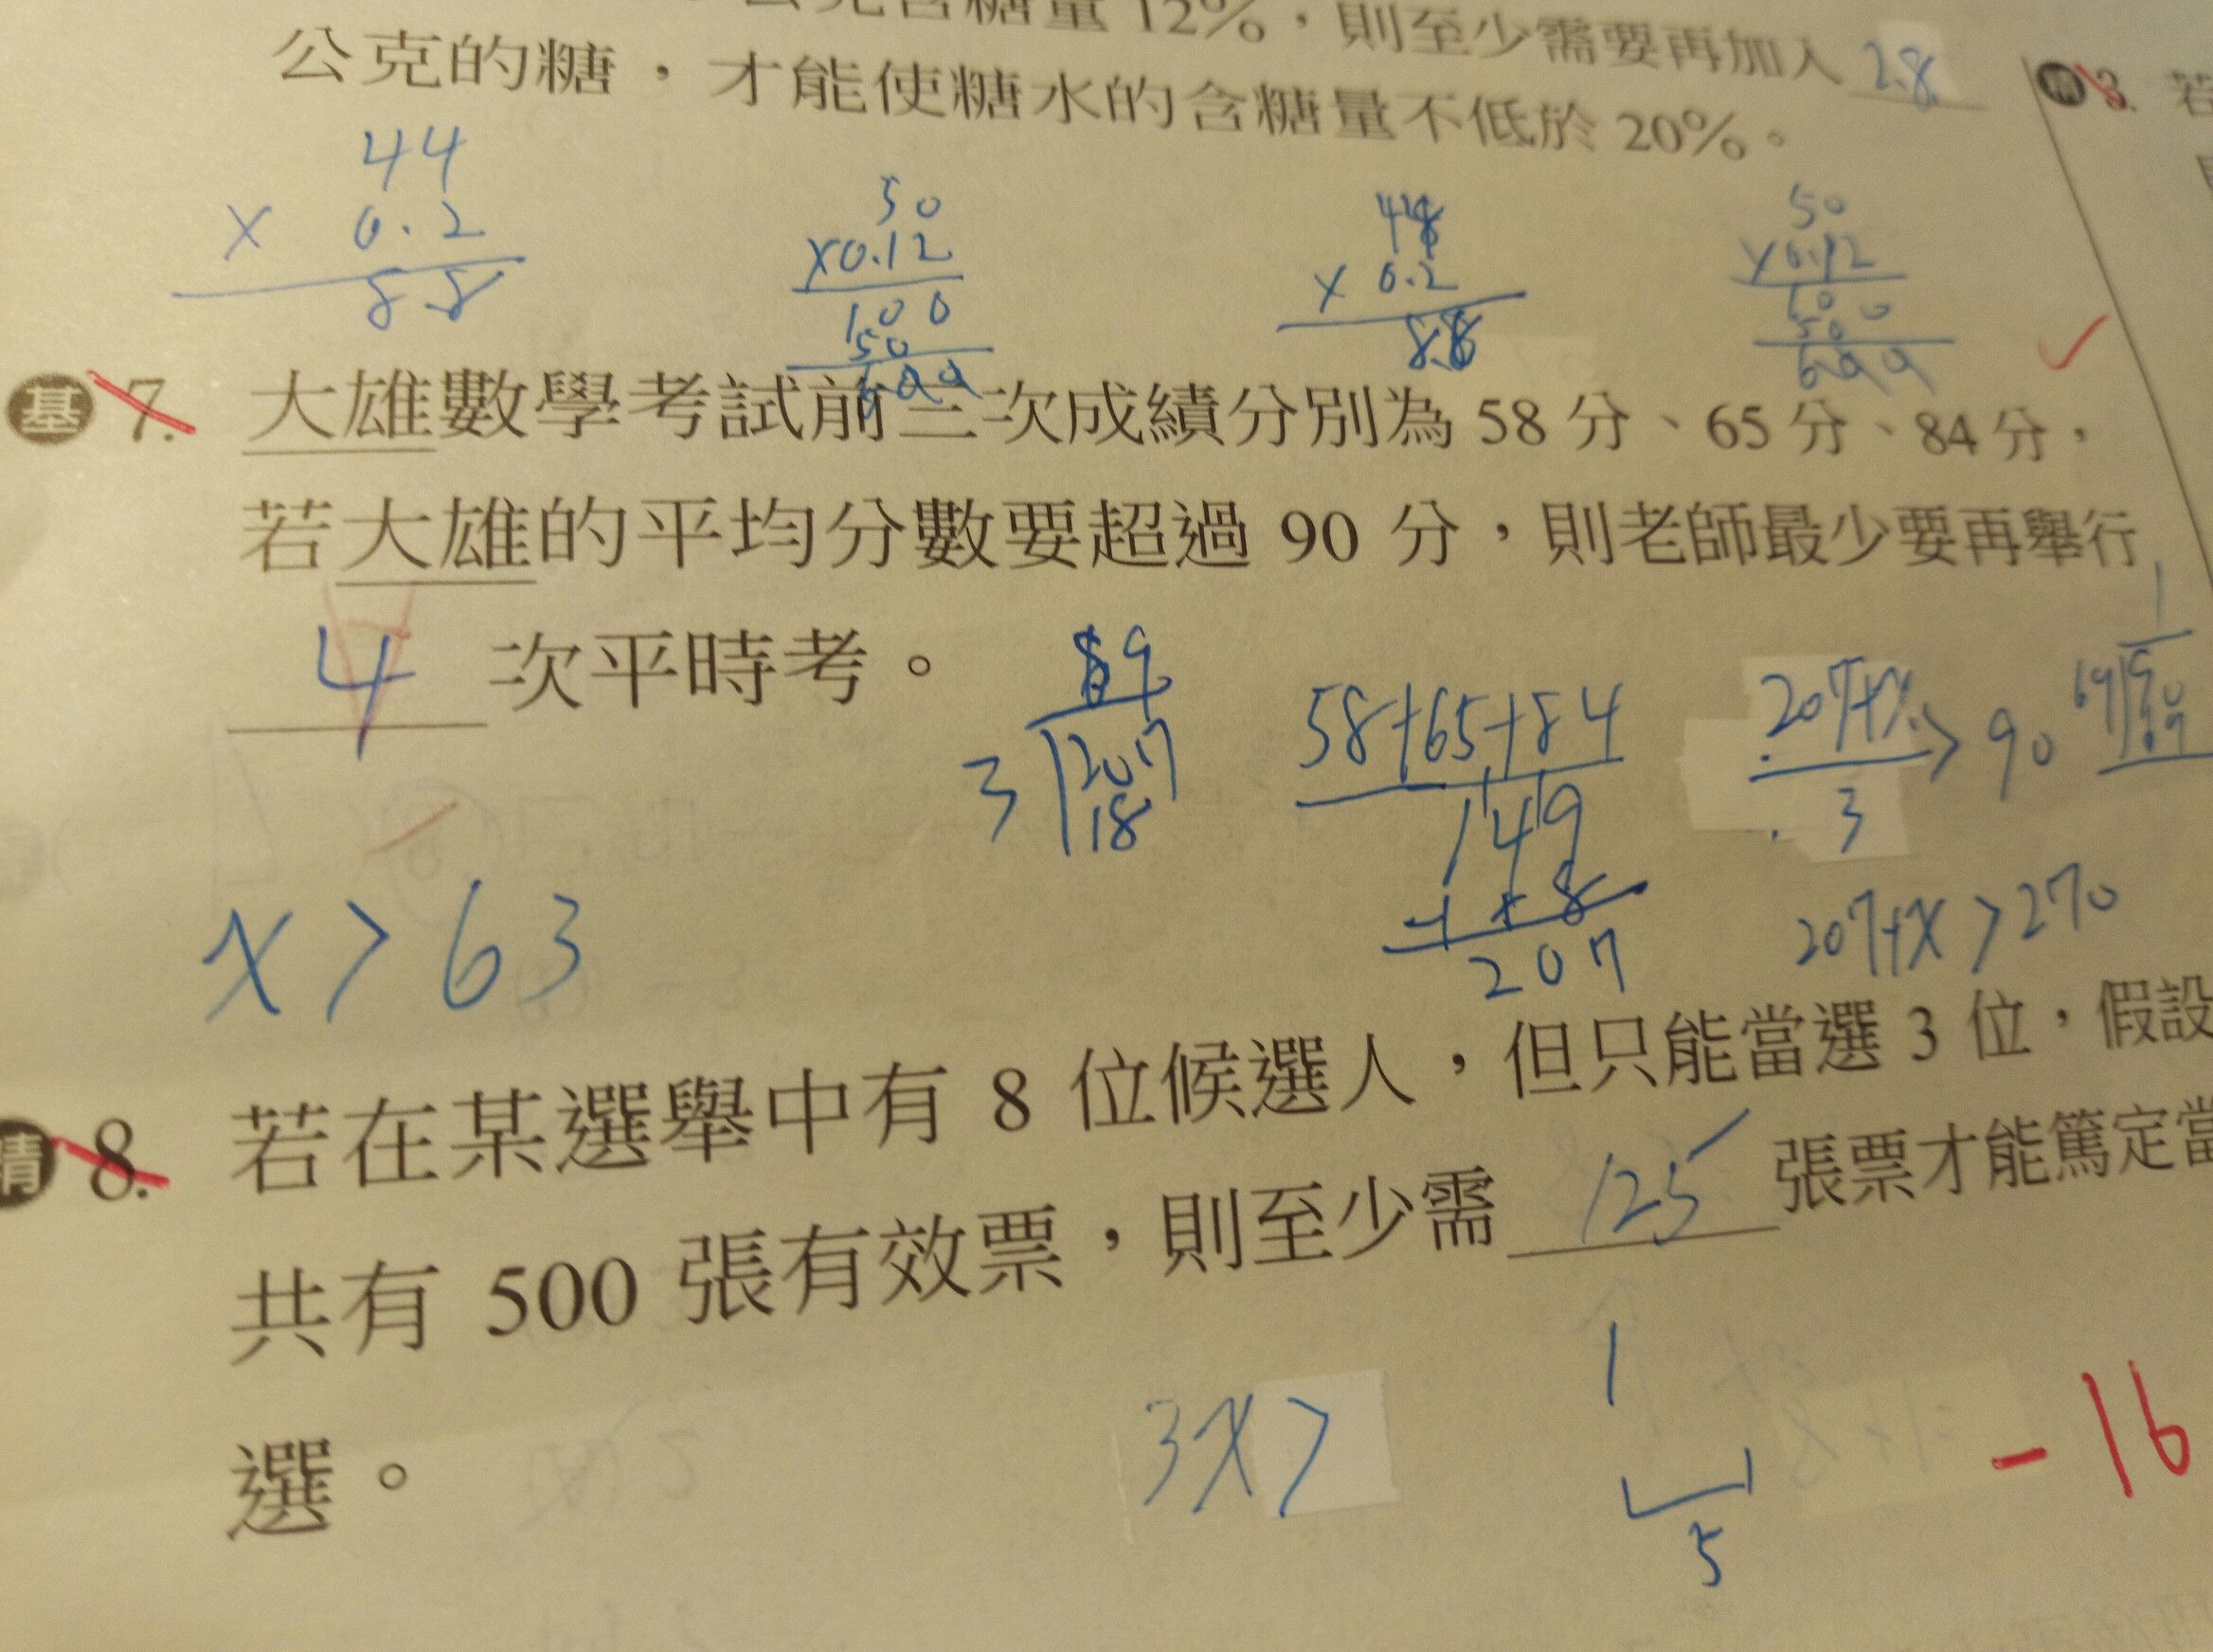 公克含糖量 12%，則至少需要再加入 2.8
公克的糖，才能使糖水的含糖量不低於 20%。
3. 若
44
× 0.2
8.8
50
×0.12
100
50
600
× 0.2
8.8
50
×0.12
100
50
600
基 7. 大雄數學考試前三次成績分別為 58 分、65 分、84 分，
若大雄的平均分數要超過 90 分，則老師最少要再舉行
4 次平時考。
69
3 207
18
58+65+84
149
58
207
207+x > 90
3
207+x > 270
x > 63
精 8. 若在某選舉中有 8 位候選人，但只能當選 3 位，假設
共有 500 張有效票，則至少需 125 張票才能篤定當
選。
3x >
1
5
-16